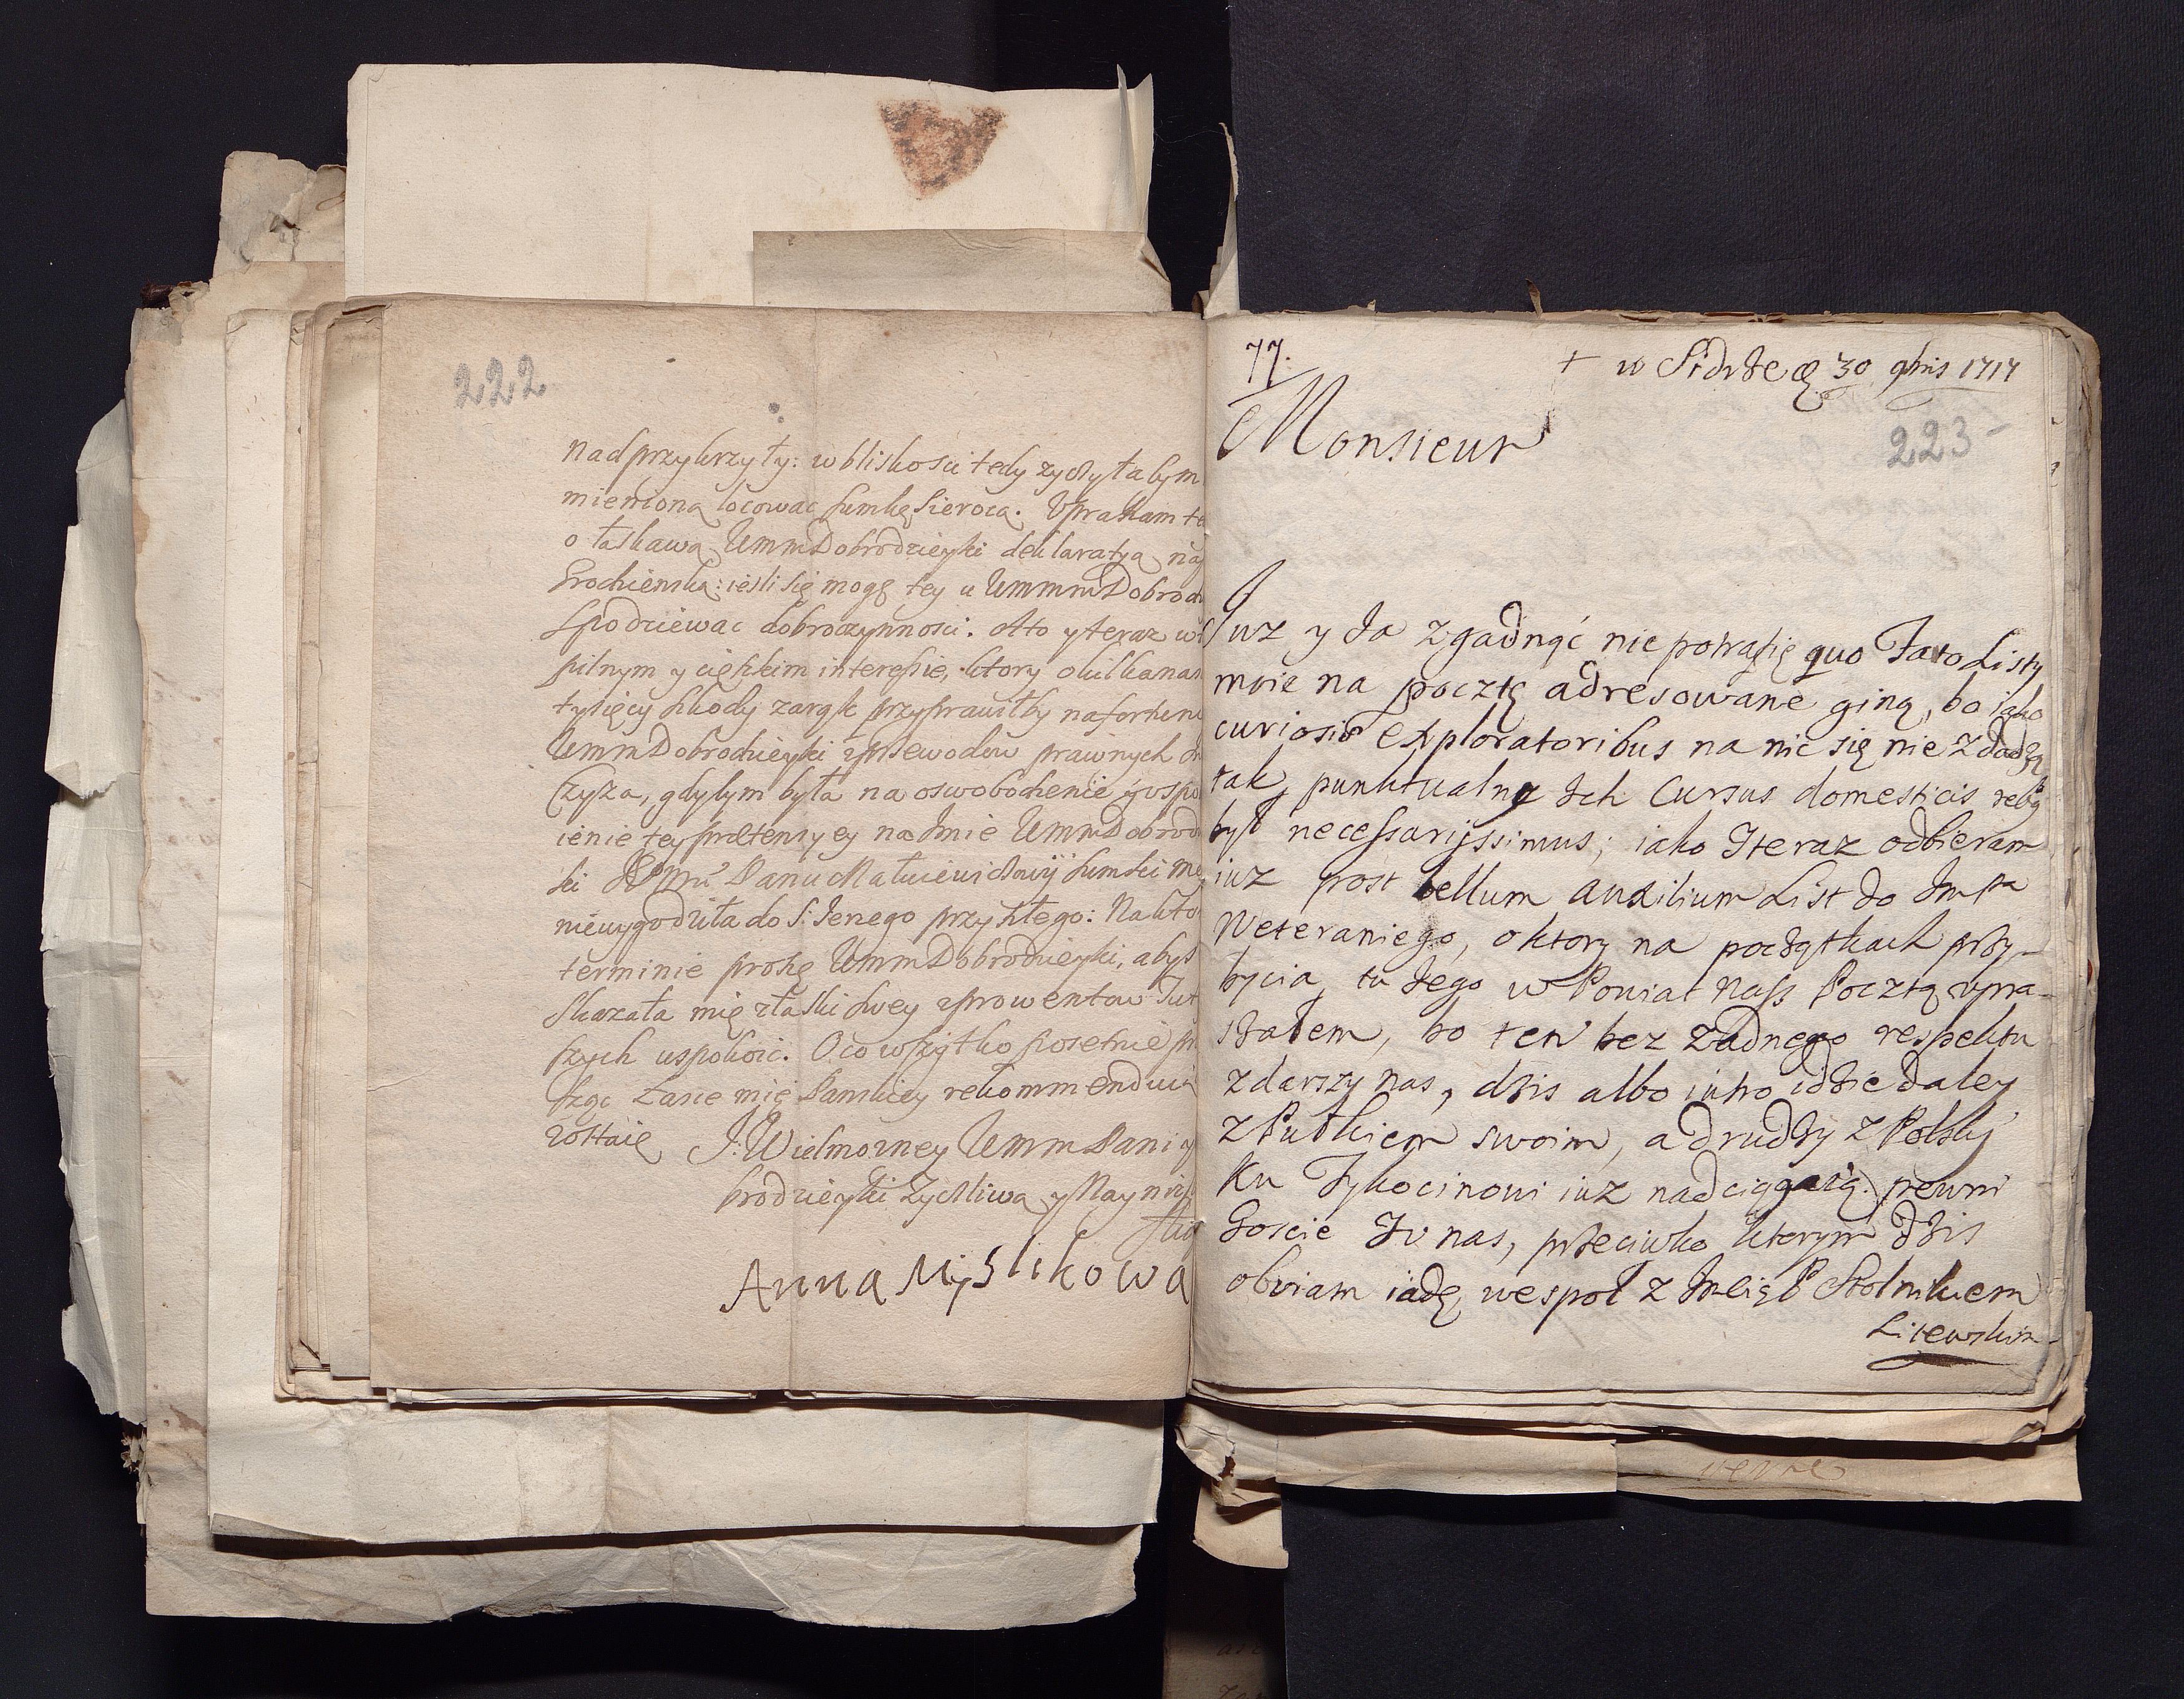 222
nadprzykrzyły: w bliskosci tedy zyczyłabym
mienioną locowac sumkę sierocą. Upraszam te
o łaskawą UmmDobrodzieyki deklaratyą na
Grodzienską: iesli się mogę tey u UmmmDobrod
spodziewac dobroczynnosci. Ato y teraz w
pilnym y cięszkim interessie, ktory o kilkanas
tysięcy szkody zaraz przyprawiłby na fortun
UmmDobrodzieyki z przewodow prawnych
Czyza, gdybym była na oswobodzenie y uspo
ienie tey prætensyey na Imie UmmDobrod
ki Panu Matusewiczowij sumki
niewygodziła do S: Jerzego przyszłego: Na kto
terminie proszę UmmDobrodzieyki, abys
skazała mię z łaski swey z prowentow
szych uspokoic. O co wszytko poretnie
sząc Łasce mię Panskiey rekommenduią
zostaię J: Wielmozney Umm Pani y
brodzieyki Zyczliwą y Nayniz
słu
Anna Myslikowa
77.
+ w Sidrze 30 9bris 1717
223
Monsieur
Juz y Ja zgadnąć nie potrafię quo Fato Listy
moie na pocztę adresowane giną, bo iako
curiosis exploratoribus na nic się nie zdadzą
tak punktualny Ich Cursus domesticis
był necessarijssimus; iako y teraz odbieram
iuz post bellum auxilium List do Impa
Weteraniego, o ktory na początkach przy-
bycia tu Jego w Powiat nasz Pocztą upra-
szałem, bo ten bez zadnego respektu
zdarszy nas, dzis albo iutro idzie daley
z Pułkiem swoim, a drudzy z Polski
Ku Tykocinowi iuz nadciągaią. pewni
Goscie y u nas, przeciwko ktorym dzis
obviam iadę, wespoł z Imcią P Stolnikiem
Litewskim